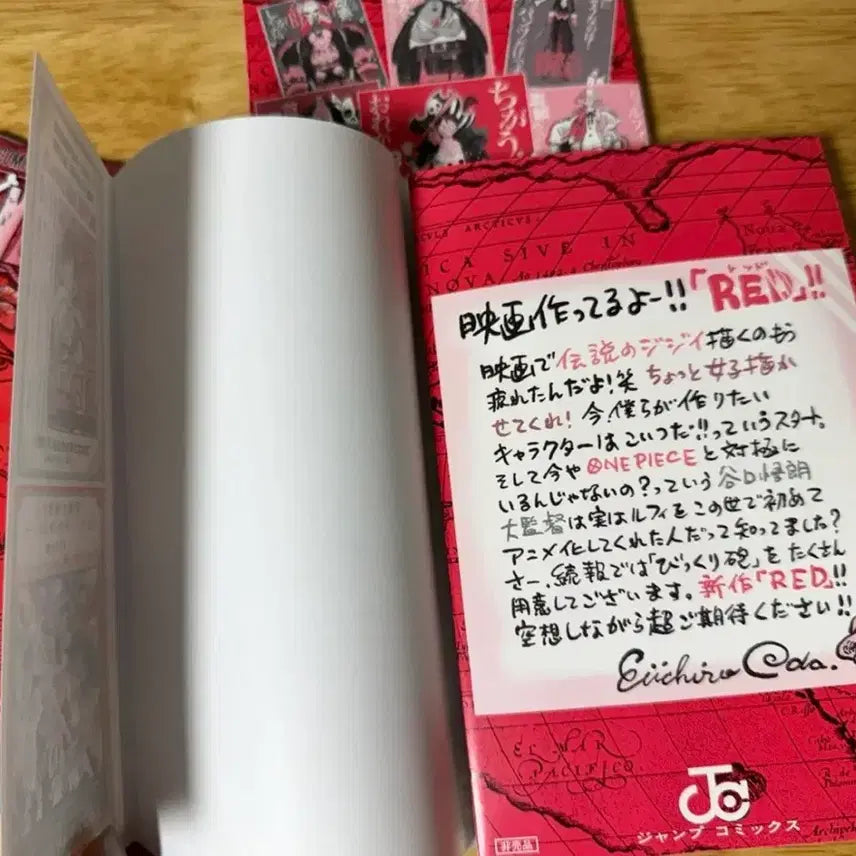 ちがう
CULS ARCTICUS
ICA SIVE IN
NOVA
Nova
映画作ってるよー!!「RED」!!
レッド
映画で伝説のジジイ描くのもう
疲れたんだよ!笑 ちょっと女子描か
せてくれ! 今、僕らが作りたい
キャラクターはこいつだ!!っていうスタート。
そして今や ONE PIECEと対極に
いるんじゃないの?っていう谷口悟朗
大監督は実はルフィをこの世で初めて
アニメ化してくれた人だって知ってました?
さー、続報では「びっくり砲」をたくさん
用意してございます。新作「RED」!!
空想しながら超ご期待ください!!
Eiichiro Oda.
EL MAR
PACIFICO
JC
ジャンプ コミックス
非売品